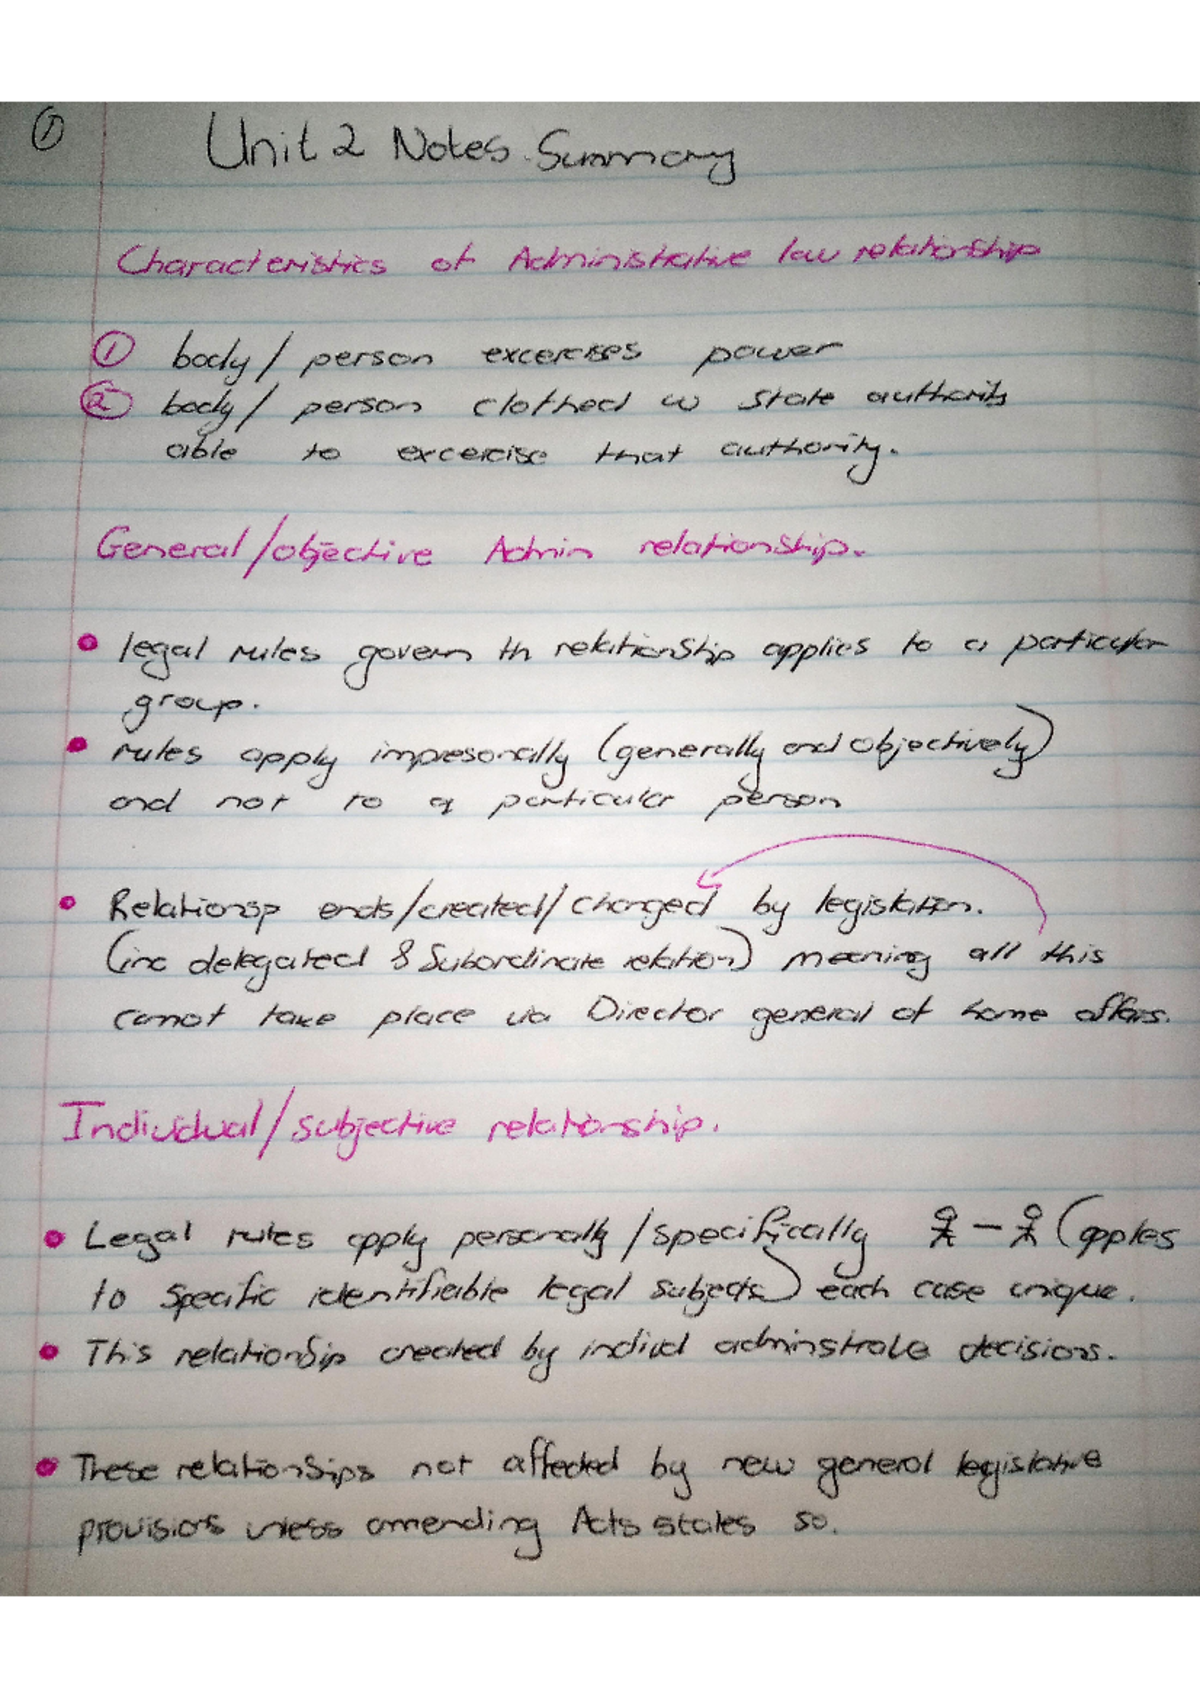 ①
Unit 2 Notes Summary
Characteristics of Administrative law relationship
① body/ person excercises power
② body/ person clothed w state authority
able to excercise that authority.
General/objective Admin relationship.
• legal rules govern th relationship applies to a particular
group.
• rules apply impresonally (generally and objectively)
and not to a particular person
• Relationsp ends/created/changed by legislation.
(inc delegated & Subordinate relation) meaning all this
cannot take place via Director general of home affairs.
Individual/subjective relationship.
• Legal rules apply personally/specifically – (apples
to specific identifiable legal subjects) each case unique.
• This relationship created by individ decisions.
• These relationships not affected by new general legislative
provisions unless amending Acts states so.